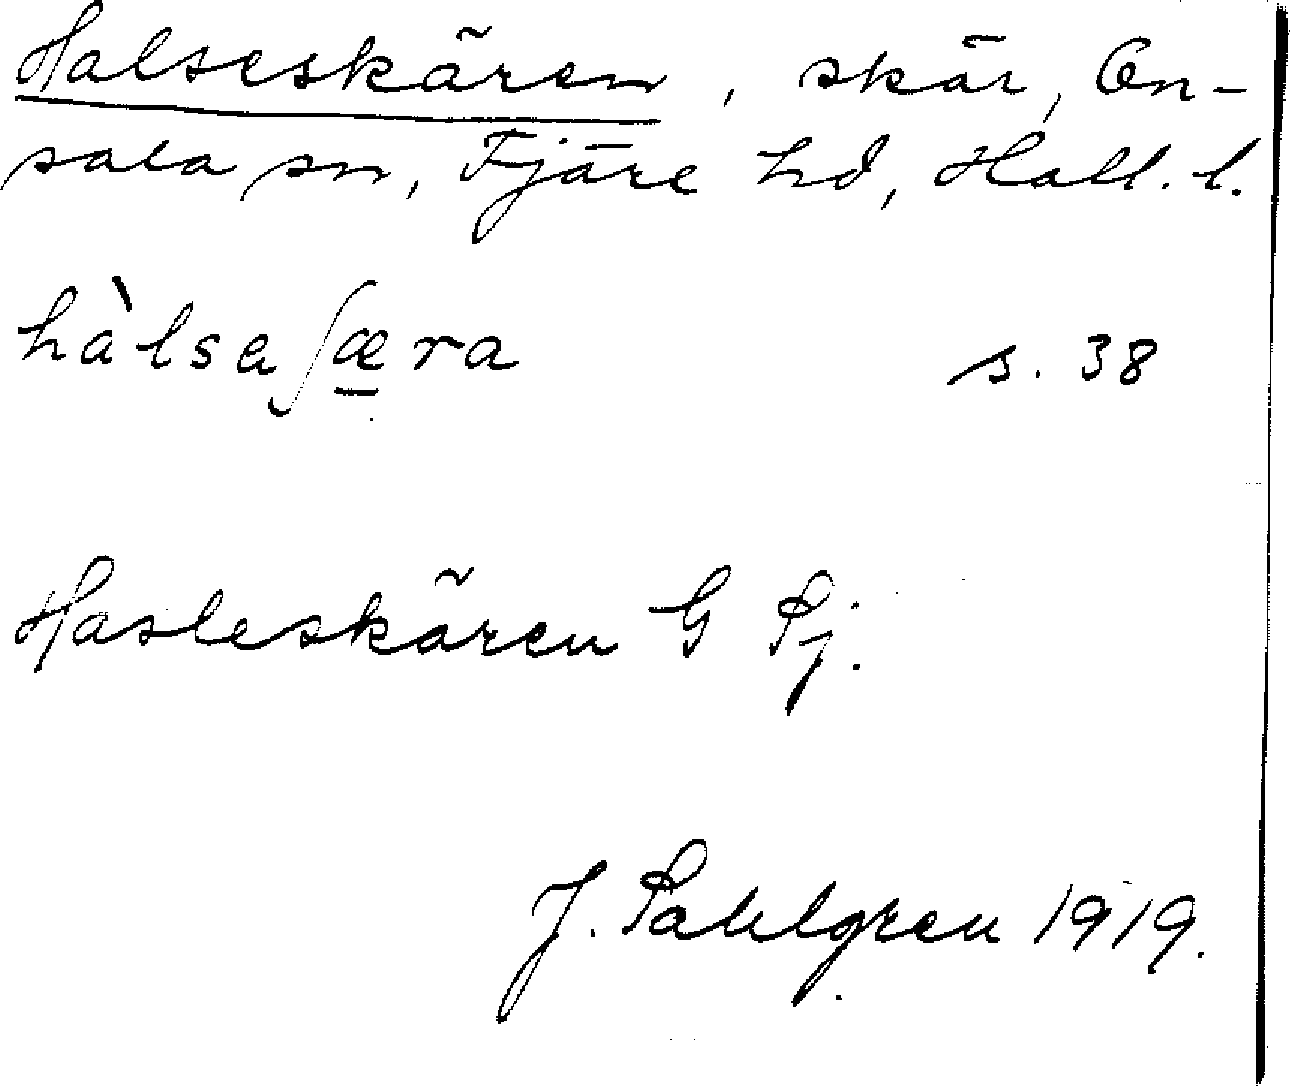 Halseskären, skär, On-
sala sn, Fjäre hd, Hall. l.
hàlsaʃæra s. 38
Hasleskären G Pj.
J. Sahlgren 1919.